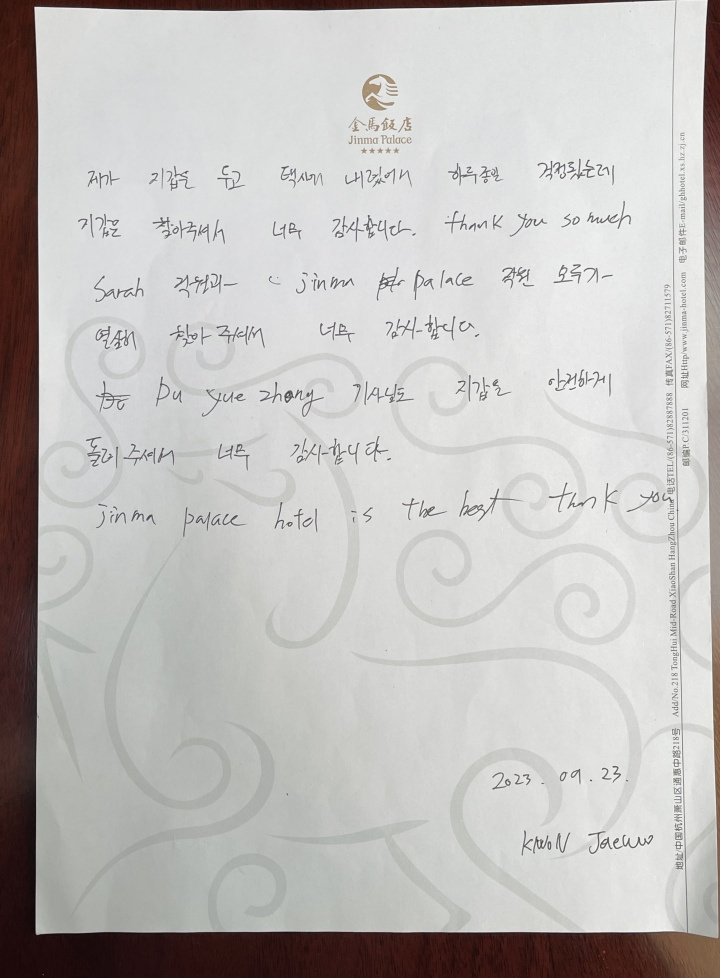 金馬飯店
Jinma Palace
★★★★★
제가 지갑을 두고 택시에 내렸어서 하루종일 걱정됐는데
지갑을 찾아주셔서 너무 감사합니다. thank you so much
Sarah 직원과 jinma palace 직원 모두가
열심히 찾아 주셔서 너무 감사합니다.
Du yue zhong 기사님도 지갑을 안전하게
돌려주셔서 너무 감사합니다.
jinma palace hotel is the best thank you
2023. 09. 23.
KWON Jaewoo
地址/中国杭州萧山区通惠中路218号 Add/No.218 TongHui Mid-Road XiaoShan HangZhou China 电话TEL/(86-571)82887888 传真FAX/(86-571)82711579
邮编P.C/311201 网址Http/www.jinma-hotel.com 电子邮件E-mail/ghhotel.xs.hz.zj.cn